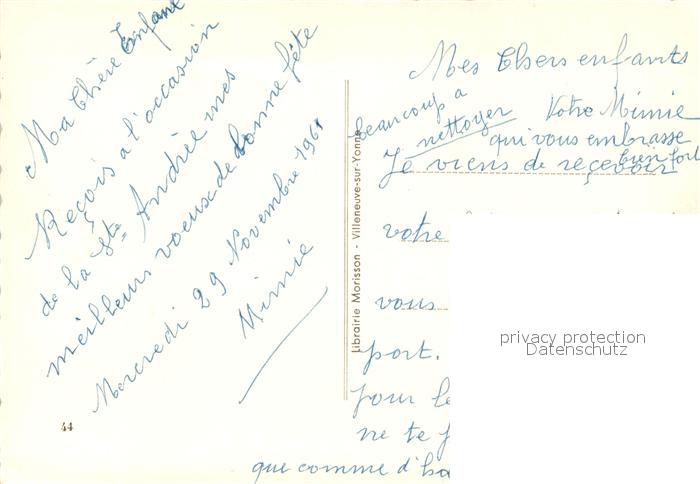 Ma Chère Enfant
Reçois a l'occasion
de la Ste Andrée mes
meilleurs voeux de bonne fête
Mercredi 29 Novembre 1961
Mimie
44
Librairie Morisson - Villeneuve-sur-Yonne
Mes Chers enfants
beaucoup a
nettoyer
Votre Mimie
qui vous embrasse
bien fort
Je viens de reçevoir
votre
vous
port.
pour le
ne te
que comme d'ha
privacy protection
Datenschutz